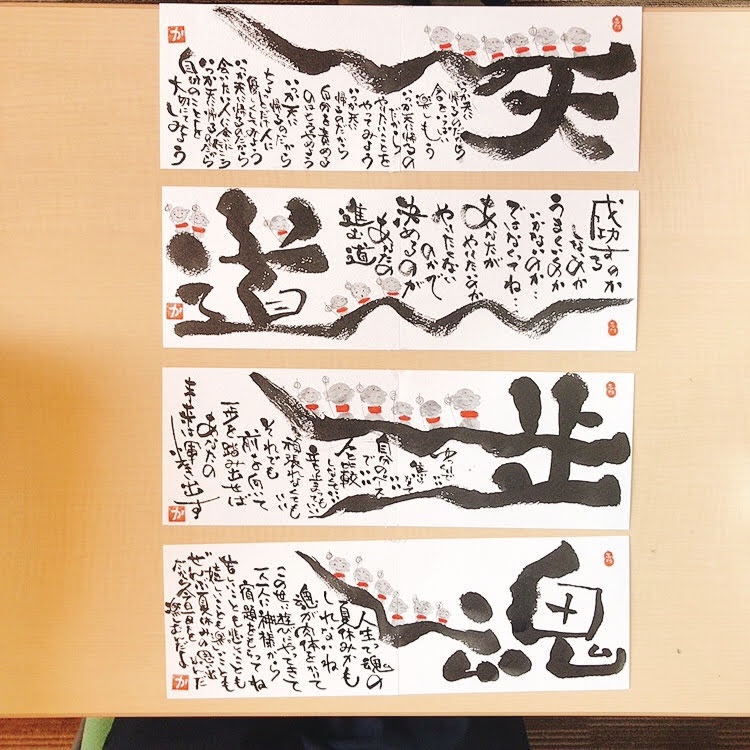 天
帰るのだから
楽しもう
いつか天に帰るの
だから
やりたいことを
やってみよう
いつか天に
帰るのだから
自分を責める
のはもうやめよう
いつか天に
帰るのだから
ちょっとだけ人に
優しくしてみよう
いつか天に帰るのだから
会いたい人に会いに行こう
いつか天に帰るのだから
自分のことを
大切にしてみよう
か
成功するのか
しないのか
うまくいくのか
いかないのか…
ではなくってね…
あなたが
やりたいのか
やりたくない
のかで
決めるのが
あなたの
進む道
道
か
歩
ゆっくりで
いい
自分のペース
でいい
人と比較
しなくていい
立ち止まってもいい
頑張れなくても
いい
それでも
前を向いて
一歩を踏み出せば
あなたの
未来は輝き出す
か
魂
人生って魂の
夏休みかも
しれないね
魂が肉体をかりて
この世に遊びにやってきて
一人一人に神様から
宿題をもらってね
苦しいことも悲しいことも
嬉しいことも楽しいことも
ぜんぶ夏休みの思い出
だから今日一日を
か